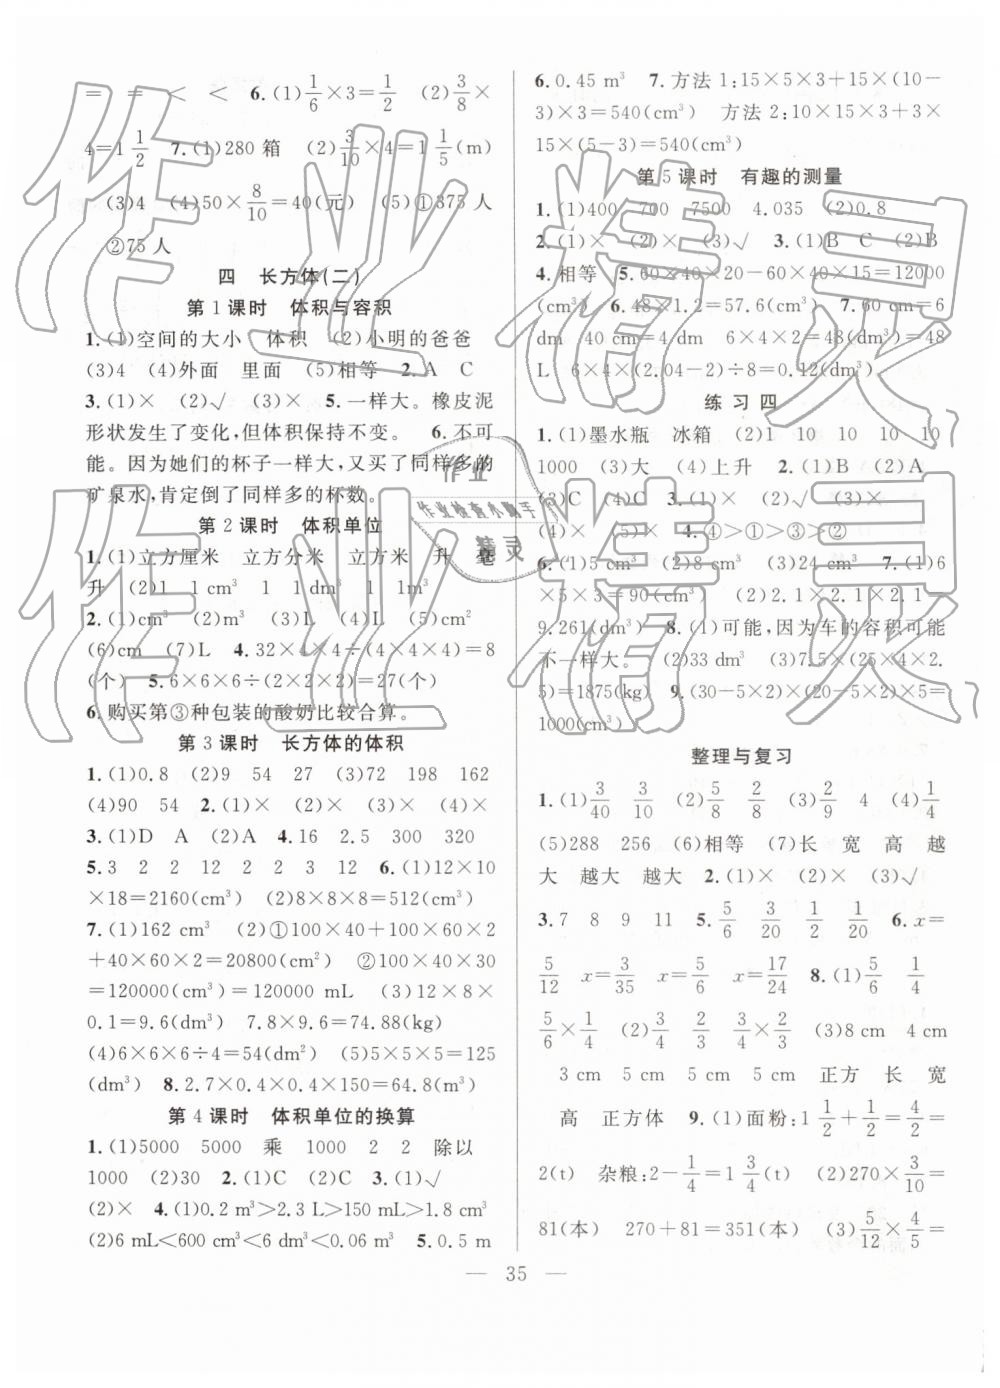 = = < < 6.(1)1/6×3=1/2 (2)3/8×
4=1 1/2 7.(1)280 箱 (2)3/10×4=1 1/5(m)
(3)4 (4)50×8/10=40(元) (5)①375 人
②75 人
四 长方体(二)
第 1 课时 体积与容积
1.(1)空间的大小 体积 (2)小明的爸爸
(3)4 (4)外面 里面 (5)相等 2.A C
3.(1)× (2)√ (3)× 5.一样大。橡皮泥
形状发生了变化,但体积保持不变。 6.不可
能。因为她们的杯子一样大,又买了同样多的
矿泉水,肯定倒了同样多的杯数。
第 2 课时 体积单位
1.(1)立方厘米 立方分米 立方米 升 毫
升 (2)1 1 cm³ 1 1 dm³ 1 1 m³
2.(1)cm³ (2)m³ (3)L (4)L (5)cm²
(6)cm (7)L 4.32×4×4÷(4×4×4)=8
(个) 5.6×6×6÷(2×2×2)=27(个)
6.购买第③种包装的酸奶比较合算。
第 3 课时 长方体的体积
1.(1)0.8 (2)9 54 27 (3)72 198 162
(4)90 54 2.(1)× (2)× (3)× (4)×
3.(1)D A (2)A 4.16 2.5 300 320
5.3 2 2 12 2 2 3 12 6.(1)12×10
×18=2160(cm³) (2)8×8×8=512(cm³)
7.(1)162 cm³ (2)①100×40+100×60×2
+40×60×2=20800(cm²) ②100×40×30
=120000(cm³)=120000 mL (3)12×8×
0.1=9.6(dm³) 7.8×9.6=74.88(kg)
(4)6×6×6÷4=54(dm²) (5)5×5×5=125
(dm³) 8.2.7×0.4×0.4×150=64.8(m³)
第 4 课时 体积单位的换算
1.(1)5000 5000 乘 1000 2 2 除以
1000 (2)30 2.(1)C (2)C 3.(1)√
(2)× 4.(1)0.2 m³>2.3 L>150 mL>1.8 cm³
(2)6 mL<600 cm³<6 dm³<0.06 m³ 5.0.5 m
6.0.45 m³ 7.方法 1:15×5×3+15×(10-
3)×3=540(cm³) 方法 2:10×15×3+3×
15×(5-3)=540(cm³)
第 5 课时 有趣的测量
1.(1)400 700 7500 4.035 (2)0.8
2.(1)× (2)× (3)√ 3.(1)B C (2)B
4.相等 5.60×40×20-60×40×15=12000
(cm³) 6.48×1.2=57.6(cm³) 7.60 cm=6
dm 40 cm=4 dm 6×4×2=48(dm³)=48
L 6×4×(2.04-2)÷8=0.12(dm³)
练 习 四
1.(1)墨水瓶 冰箱 (2)1 10 10 10 10
1000 (3)大 (4)上升 2.(1)B (2)A
(3)C (4)C 3.(1)× (2)√ (3)×
(4)× (5)× 4.④>①>③>②
6.(1)5 cm³ (2)8 cm³ (3)24 cm³ 7.(1)6
×5×3=90(cm³) (2)2.1×2.1×2.1=
9.261(dm³) 8.(1)可能,因为车的容积可能
不一样大。 (2)33 dm³ (3)7.5×(25×4×2.
5)=1875(kg) 9.(30-5×2)×(20-5×2)×5=
1000(cm³)
整理与复习
1.(1)3/40 3/10 (2)5/8 2/8 (3)2/9 4 (4)1/4
(5)288 256 (6)相等 (7)长 宽 高 越
大 越大 越大 2.(1)× (2)× (3)√
3.7 8 9 11 5.5/6 3/20 1/2 1/20 6.x=
5/12 x=3/35 x=5/6 x=17/24 8.(1)5/6 1/4
5/6×1/4 (2)3/4 2/3 3/4×2/3 (3)8 cm 4 cm
3 cm 5 cm 5 cm 5 cm 正方 长 宽
高 正方体 9.(1)面粉:1 1/2+1/2=4/2=
2(t) 杂粮:2-1/4=1 3/4(t) (2)270×3/10=
81(本) 270+81=351(本) (3)5/12×4/5=
— 35 —
作业精灵
作业精灵
作业
作业检查小帮手
精灵